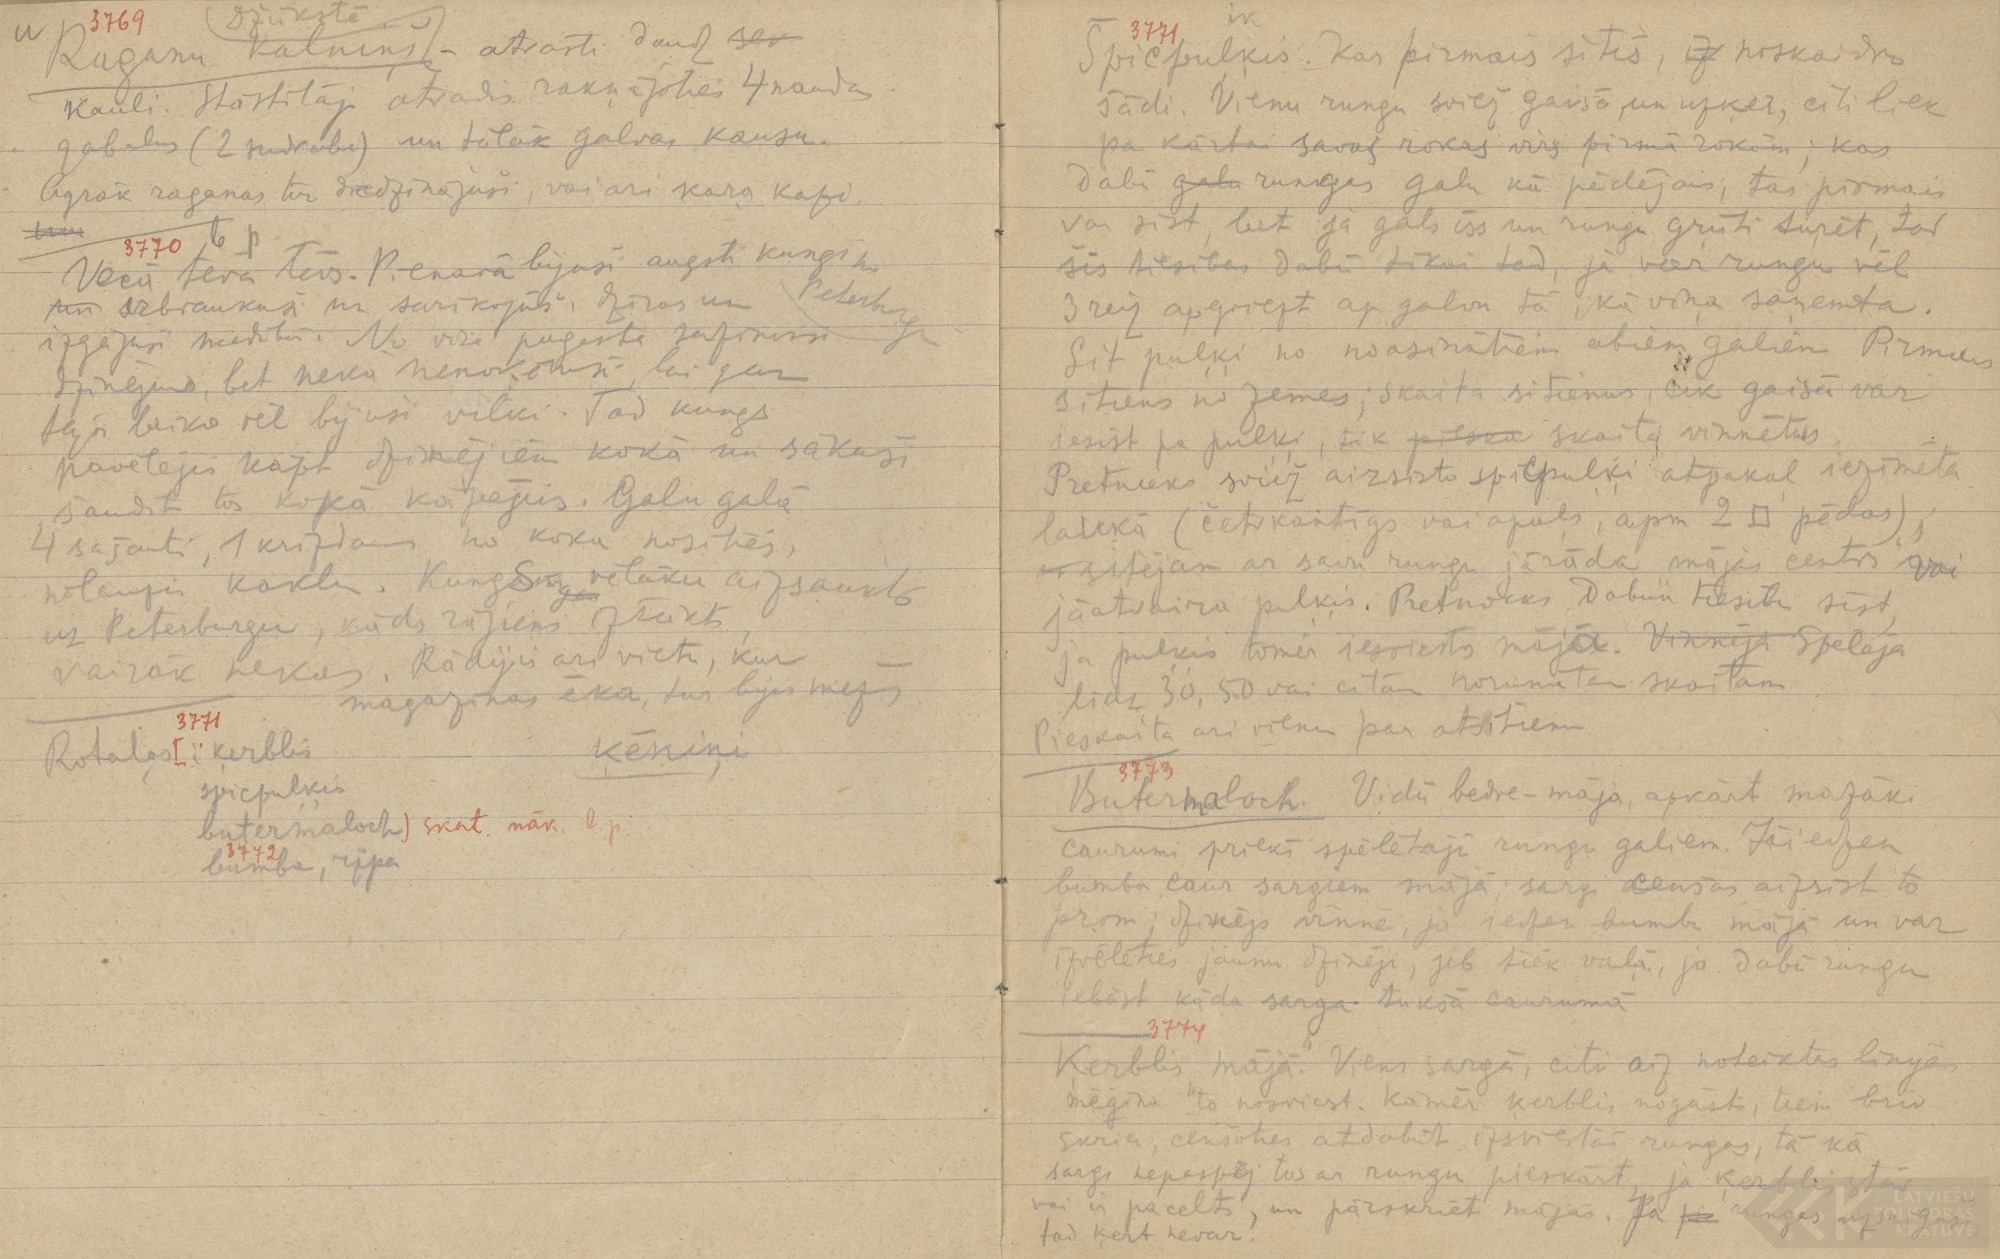 3769 Džūkstē
Raganu kalniņš – atrasti daudz
kauli. Stāstītāji atradis rakņājoties 4 naudas
gabalus (2 sudraba) un tālāk galvas kausu.
Agrāk raganas tur dzedzinājuši, vai arī kara kapi.
3770
Vecā tēva tēvs. Pienavā bijuši augsti kungi no
Peterburgas
atbraukuši un sarīkojuši dzīres un
izgājuši medībās. No visa pagasta
dzinējus, bet nekā nenošāvuši, lai gan
tajā laikā vēl bijuši vilki. Tad kungs
pavēlējis kāpt dzinējiem kokā un sākuši
šaudīt tos kokā kāpējus. Galu galā
4 sašauti, 1 krizdams no koka nosities,
nolauzis kaklu. Kungs vēlāku aizsaukts
uz Peterburgu, kāds rājiens izteikts,
vairāk nekas. Rādījis arī vietu, kur
magazinas ēka, tur bijis mežs
3771
Rotaļas [: ķerblis
ķēniņi
spicpuļķis
butermaloch) skat. nāk. l. p.
3772
bumba, ripa
3771
Spicpuļķis. Kas pirmais sitīs, noskaidro
šādi. Vienu rungu sviež gaisā un uzķer, citi liek
pa kārtai savas rokas virs pirmā rokām; kas
dabū rungas galu kā pēdējais, tas pirmais
var sist, bet ja gals īss un rungu grūti turēt, tad
šīs tiesības dabū tikai tad, ja var rungu vēl
3 reiz apgriezt ap galvu tā, kā viņa saņemta.
Sit puļķi no noasinātiem abiem galiem. Pirmais
sitiens no zemes; skaita sitienus, cik gaisā var
iesist pa puļķi, tik skaita vinnētus.
Pretnieks sviež aizsisto spicpuļķi atpakaļ iezīmētā
laukā (četrkantīgs vai apaļš, apm 2 □ pēdas),
sitējam ar savu rungu jārāda mājas centrs vai
jāatvaira puļķis. Pretnieks dabū tiesību sist,
ja puļķis tomēr iesviests mājā. Spēlēja
līdz 30, 50 vai citam norunātam skaitam
Pieskaita arī vienu par atsitienu
3773
Butermaloch. Vidū bedre – māja, apkārt mazāki
caurumi priekš spēlētāju rungu galiem. Jāiedzen
bumba caur sargiem mājā; sargi cenšas aizsist to
prom; dzinējs vinnē, ja iedzen bumbu mājā un var
izvēlēties jaunu dzinēju, jeb tiek vaļā, ja dabū rungu
iebāst kāda sarga tukšā caurumā
3774
Ķerblis mājā. Viens sargā, citi aiz noteiktas līnijas
mēģina to nosviest. Kamēr ķerblis nogāsts, tiem brīv
skriet, cenšoties atdabūt izsviestās rungas, tā kā
sargs nepaspēj tos ar rungu pieskārt, ja ķerblis stāv
vai ir pacelts, un pārskriet mājās. Ja rungas
tad ķert nevar.
LATVIEŠU
FOLKLORAS
KRĀTUVE